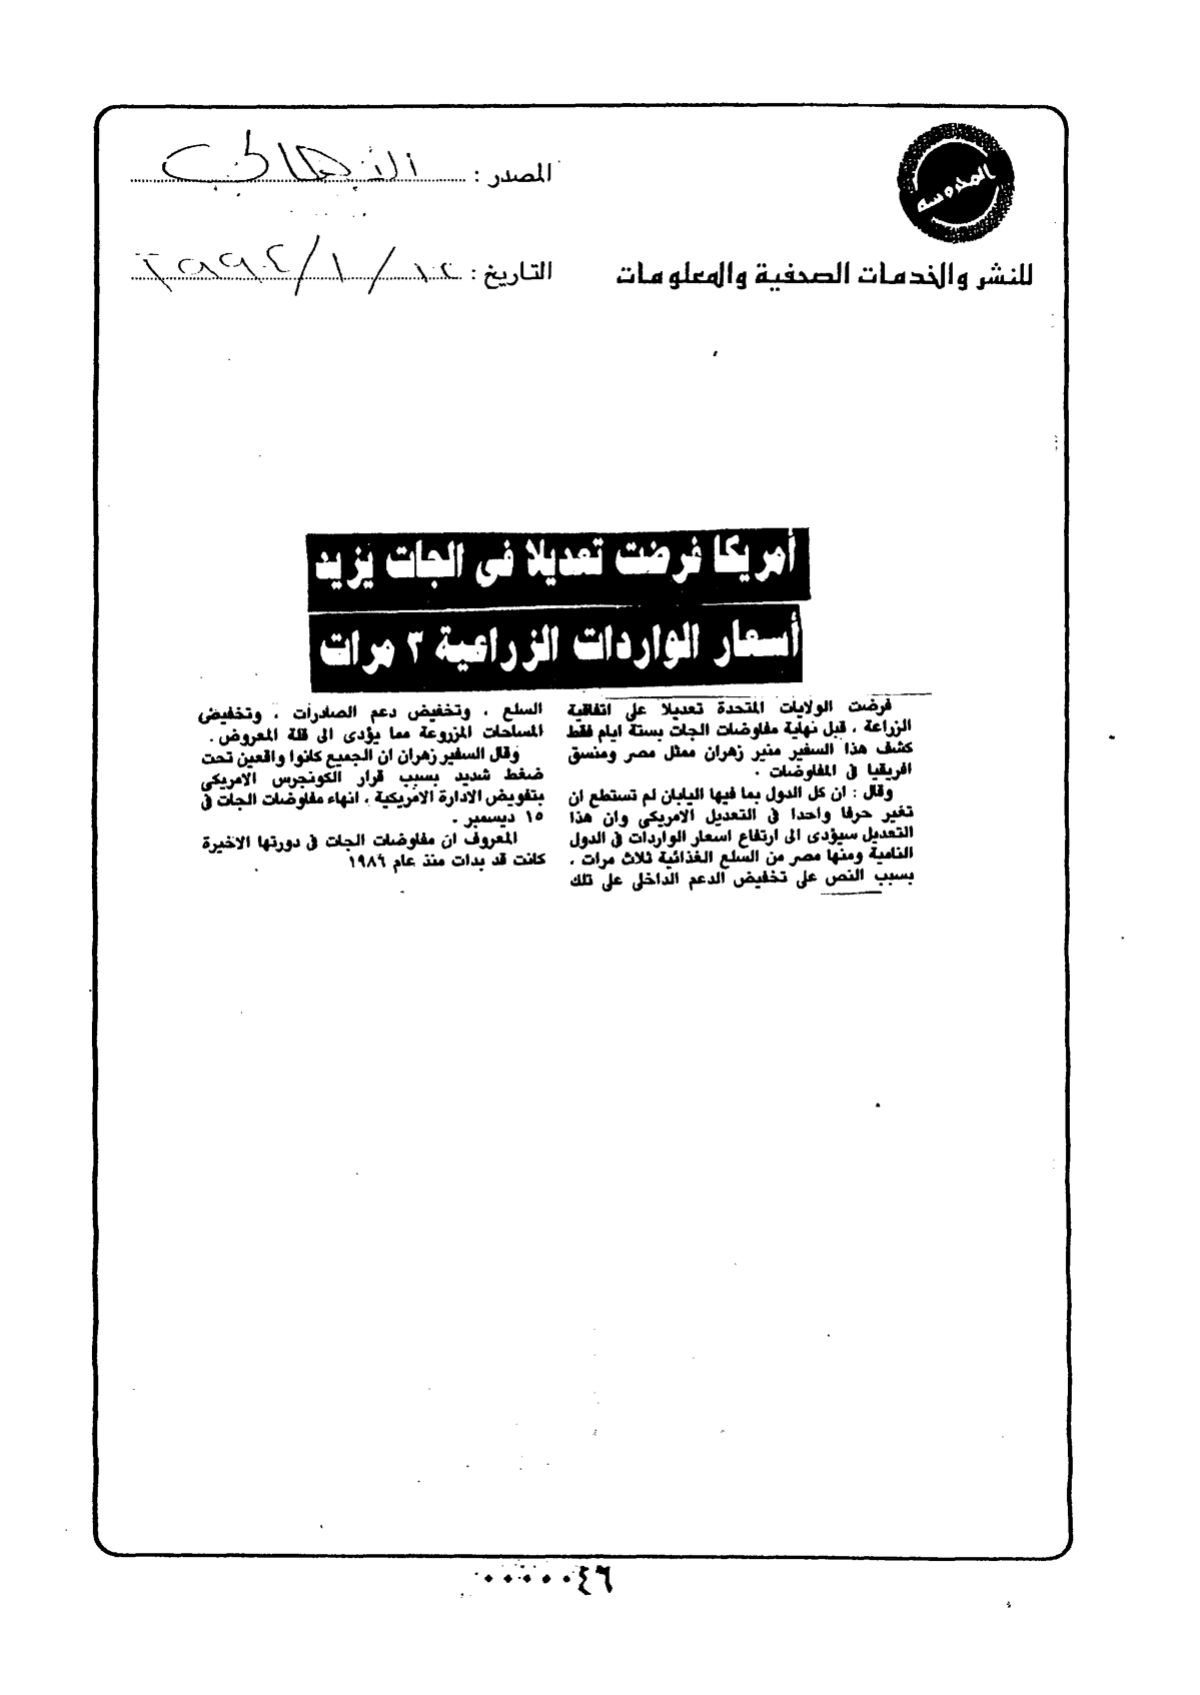 المحروسه
للنشر والخدمات الصحفية والمعلومات
المصدر :
التاريخ :
أمريكا فرضت تعديلا فى الجات يزيد
أسعار الواردات الزراعية ٣ مرات
فرضت الولايات المتحدة تعديلا على اتفاقية
الزراعة ، قبل نهاية مفاوضات الجات بستة ايام فقط
كشف هذا السفير منير زهران ممثل مصر ومنسق
افريقيا فى المفاوضات .
وقال : ان كل الدول بما فيها اليابان لم تستطع ان
تغير حرفا واحدا فى التعديل الامريكى وان هذا
التعديل سيؤدى الى ارتفاع اسعار الواردات فى الدول
النامية ومنها مصر من السلع الغذائية ثلاث مرات ،
بسبب النص على تخفيض الدعم الداخلى على تلك
السلع ، وتخفيض دعم الصادرات ، وتخفيض
المساحات المزروعة مما يؤدى الى قلة المعروض .
وقال السفير زهران ان الجميع كانوا واقعين تحت
ضغط شديد بسبب قرار الكونجرس الامريكى
بتفويض الادارة الامريكية ، انهاء مفاوضات الجات فى
١٥ ديسمبر .
المعروف ان مفاوضات الجات فى دورتها الاخيرة
كانت قد بدات منذ عام ١٩٨٦